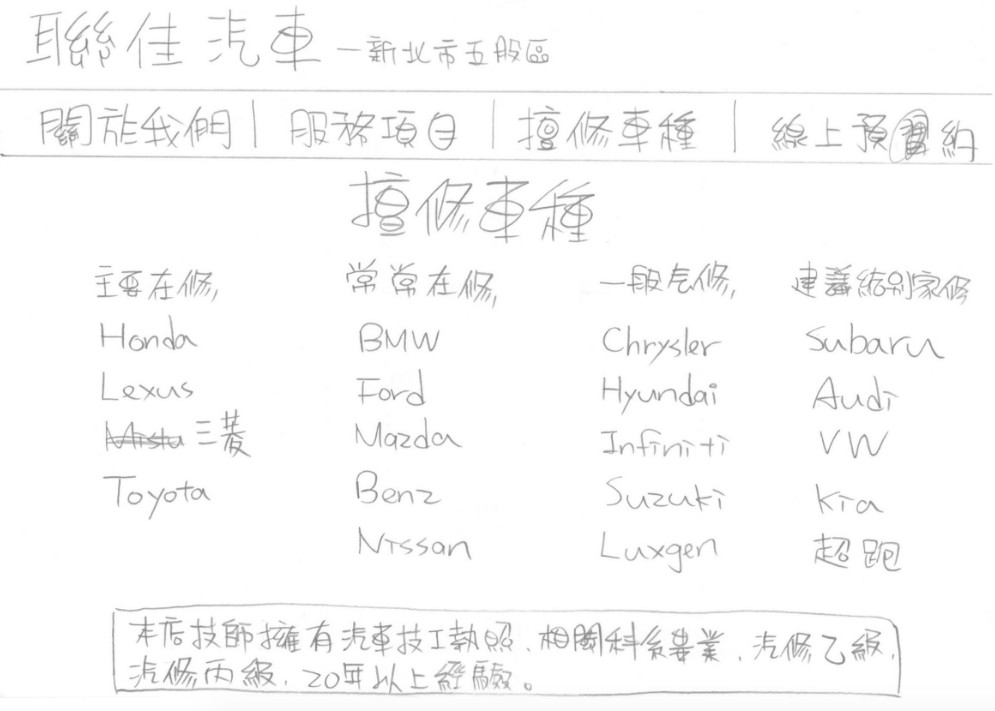 聯佳汽車 – 新北市五股區
關於我們 | 服務項目 | 擅修車種 | 線上預約
擅修車種
主要在修, 常常在修, 一般在修, 建議給別家修
Honda BMW Chrysler Subaru
Lexus Ford Hyundai Audi
三菱 Mazda Infiniti VW
Toyota Benz Suzuki Kia
Nissan Luxgen 超跑
本店技師擁有汽車技工執照、相關科系畢業、汽修乙級、
汽修丙級、20年以上經驗。